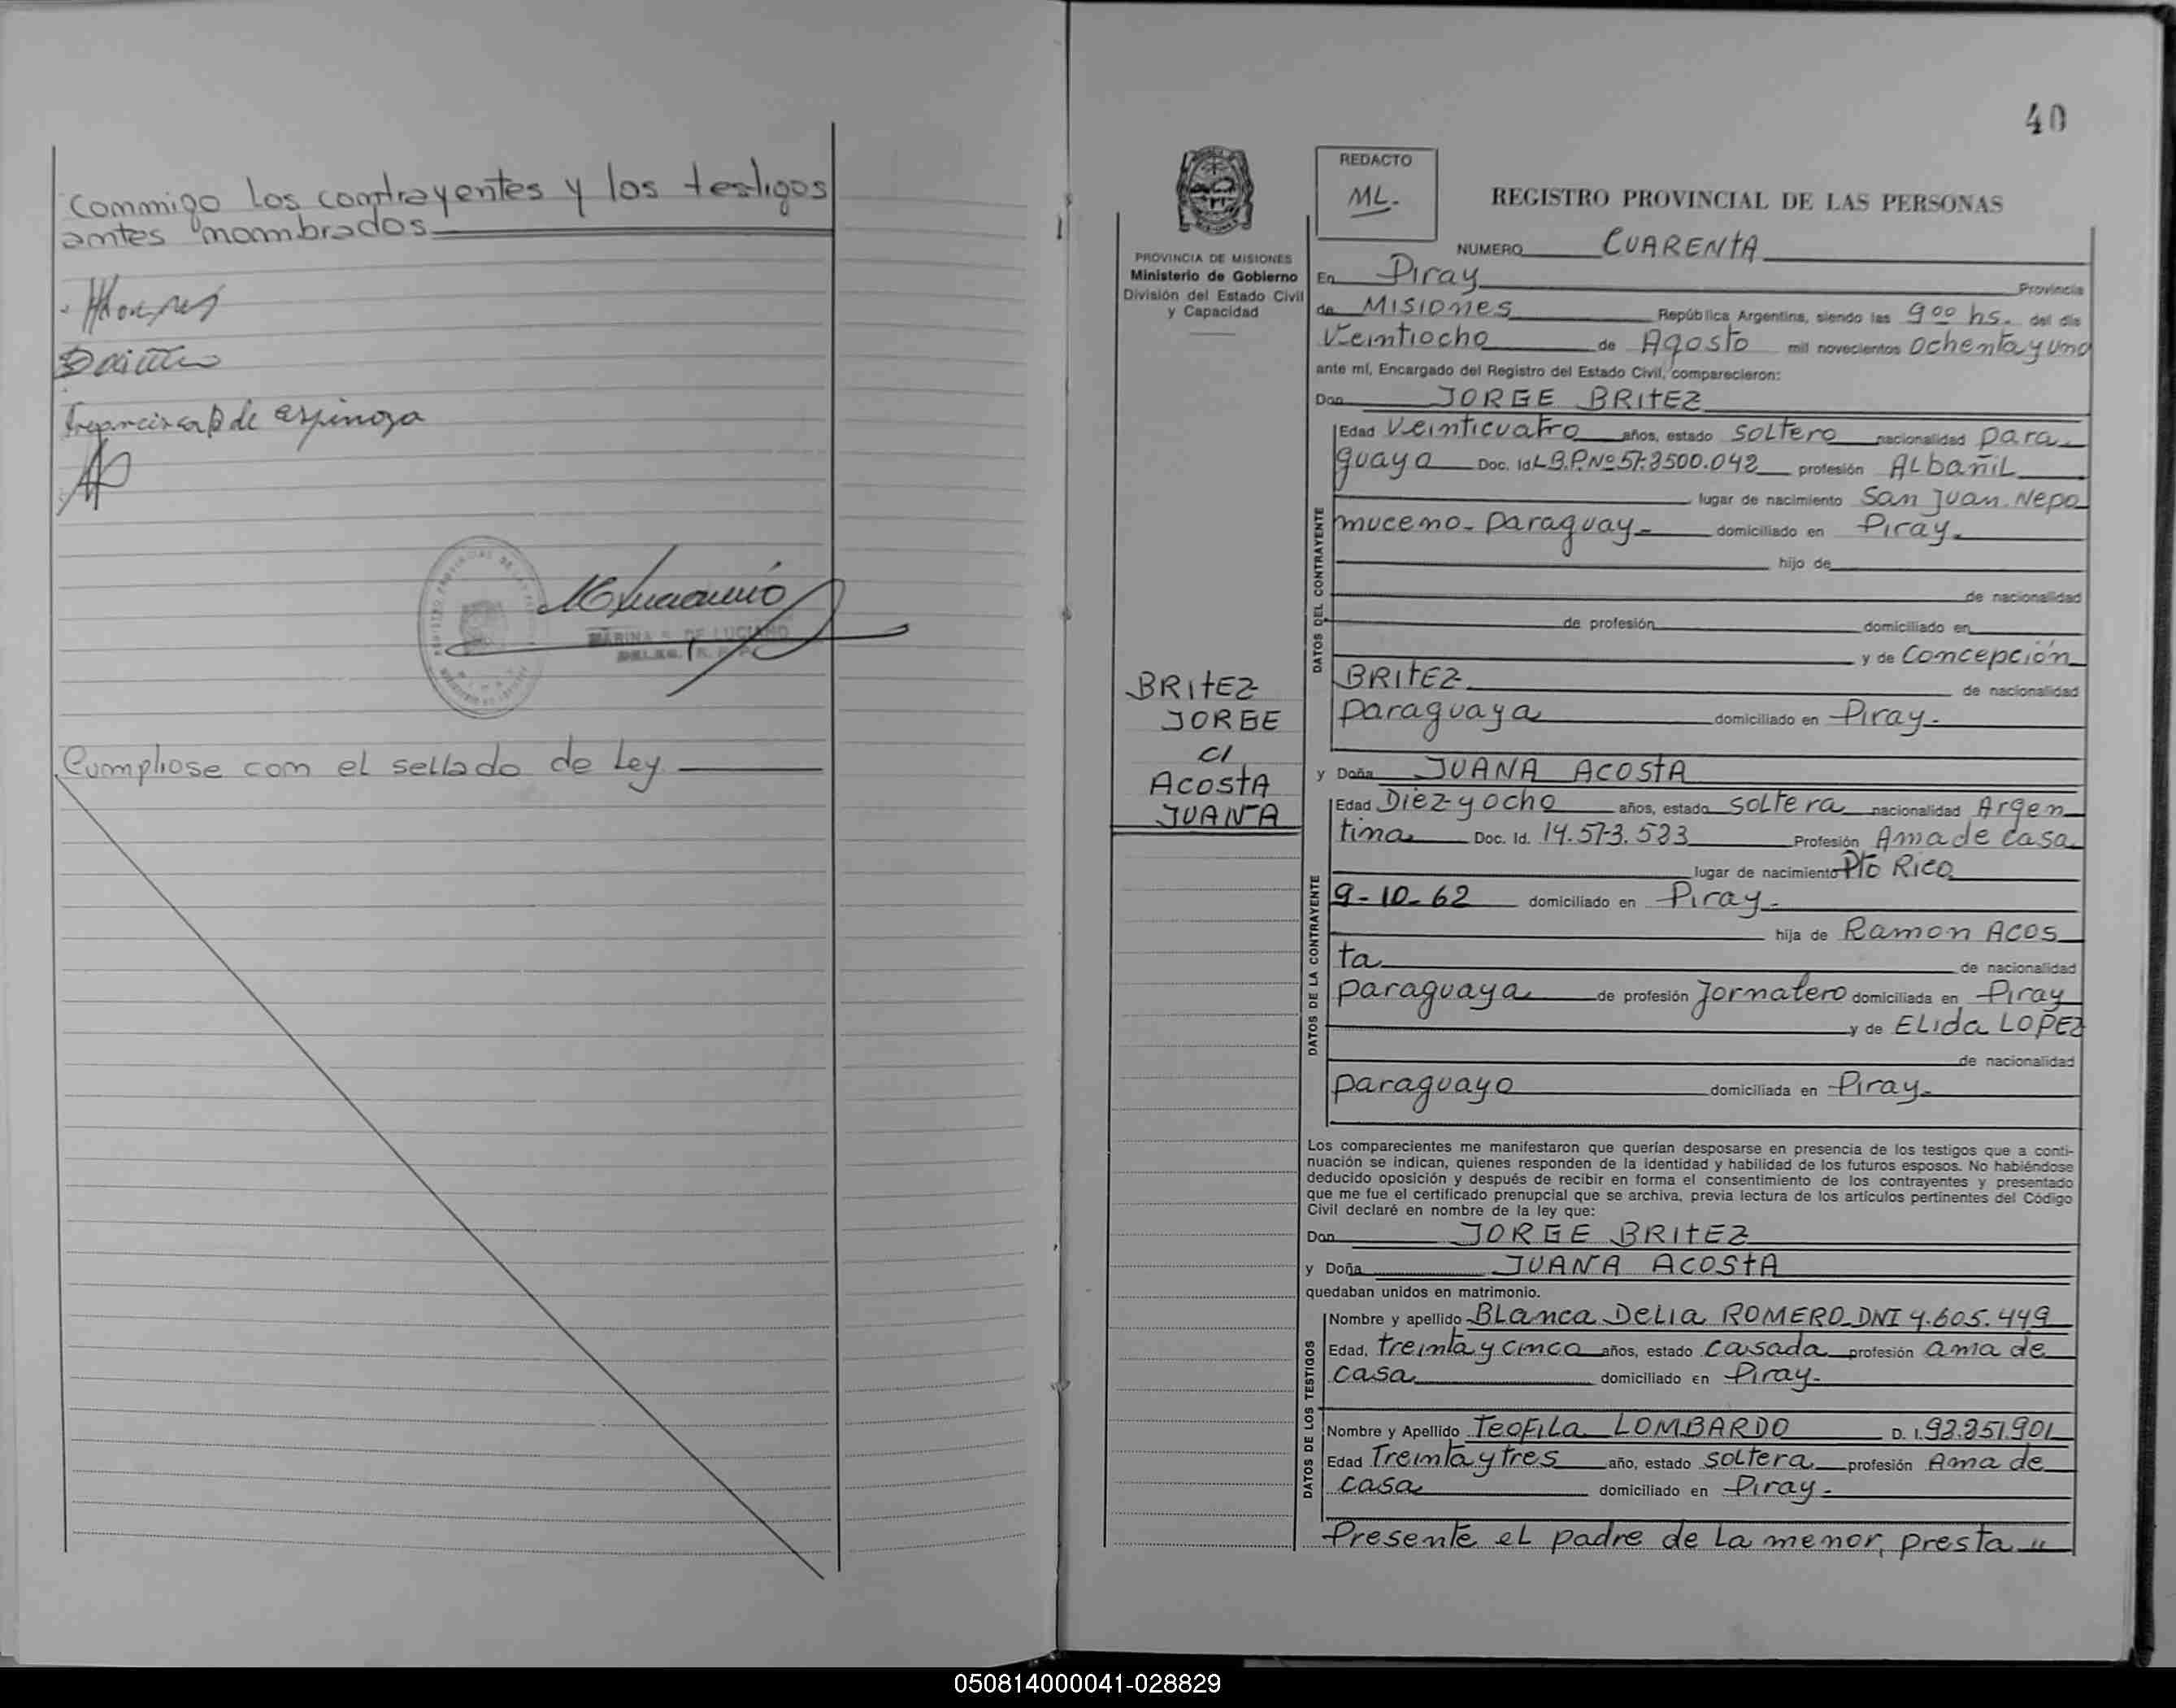 Conmigo los contrayentes y los testigos
antes nombrados
Francisca B de espinoza
MARINA S. DE LUCIANO
Cumpliose con el sellado de Ley
40
REDACTO
ML.
REGISTRO PROVINCIAL DE LAS PERSONAS
NUMERO CUARENTA
PROVINCIA DE MISIONES
Ministerio de Gobierno
División del Estado Civil
y Capacidad
En Piray Provincia
de Misiones República Argentina, siendo las 9 00 hs. del día
Veintiocho de Agosto mil novecientos ochenta y uno
ante mí, Encargado del Registro del Estado Civil, comparecieron:
Don JORGE BRITEZ
DATOS DEL CONTRAYENTE
Edad Veinticuatro años, estado soltero nacionalidad para
guaya Doc. Id. profesión Albañil
lugar de nacimiento San Juan Nepo
muceno - Paraguay - domiciliado en Piray.
hijo de
de nacionalidad
de profesión domiciliado en
y de Concepción
BRITEZ de nacionalidad
paraguaya domiciliado en Piray.
BRITEZ
JORGE
c/
ACOSTA
JUANA
y Doña JUANA ACOSTA
DATOS DE LA CONTRAYENTE
Edad Diez y ocho años, estado soltera nacionalidad Argen
tina Doc. Id. 14.573.523 Profesión Ama de casa
lugar de nacimiento Pto Rico
9-10-62 domiciliado en Piray.
hija de Ramon Acos
ta de nacionalidad
paraguaya de profesión Jornalero domiciliada en Piray
y de Elida LOPEZ
de nacionalidad
paraguayo domiciliada en Piray.
Los comparecientes me manifestaron que querían desposarse en presencia de los testigos que a conti-
nuación se indican, quienes responden de la identidad y habilidad de los futuros esposos. No habiéndose
deducido oposición y después de recibir en forma el consentimiento de los contrayentes y presentado
que me fue el certificado prenupcial que se archiva, previa lectura de los artículos pertinentes del Código
Civil declaré en nombre de la ley que:
Don JORGE BRITEZ
y Doña JUANA ACOSTA
quedaban unidos en matrimonio.
DATOS DE LOS TESTIGOS
Nombre y apellido Blanca Delia ROMERO DNI 4.605.449
Edad, treinta y cinco años, estado casada profesión ama de
casa domiciliado en Piray.
Nombre y Apellido Teofila LOMBARDO D. I. 93.351.901
Edad Treinta y tres año, estado soltera profesión Ama de
casa domiciliado en Piray.
Presente el padre de la menor, presta "
050814000041-028829